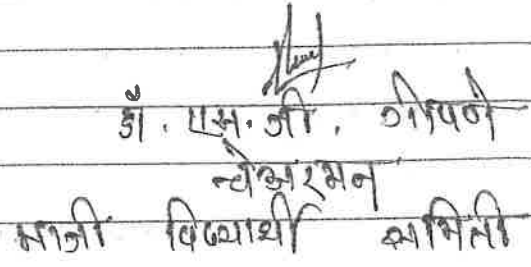 डॉ. एस. जी. गोपणे
चेअरमन
माजी विद्यार्थी समिती